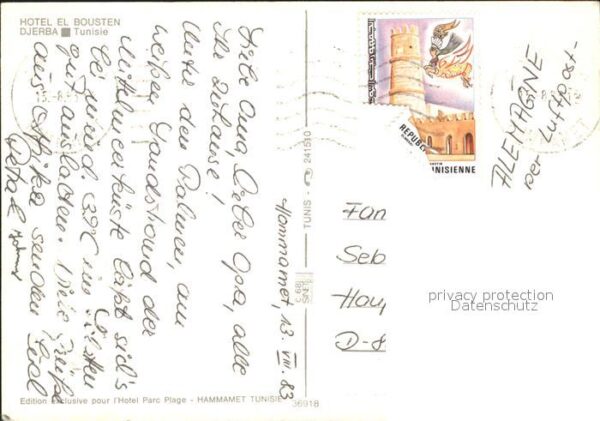 HOTEL EL BOUSTEN
DJERBA Tunisie
Liebe Oma, Lieber Opa, alle
Ihr Zuhause!
Unter den Palmen, am
weißen Sandstrand der
Mittelmeerküste läßt sich's
bei mind. 39°C im Schatten
gut aushalten. Viele Grüße
aus Afrika senden Euch
Hammamet, 13. VIII. 83
TUNIS - 241510
REPUBL
TUNISIENNE
ALEMAGNE
per Luftpost
Fam
Seb
Hau
D-8
privacy protection
Datenschutz
Edition exclusive pour l'Hotel Parc Plage - HAMMAMET TUNISIE 36918